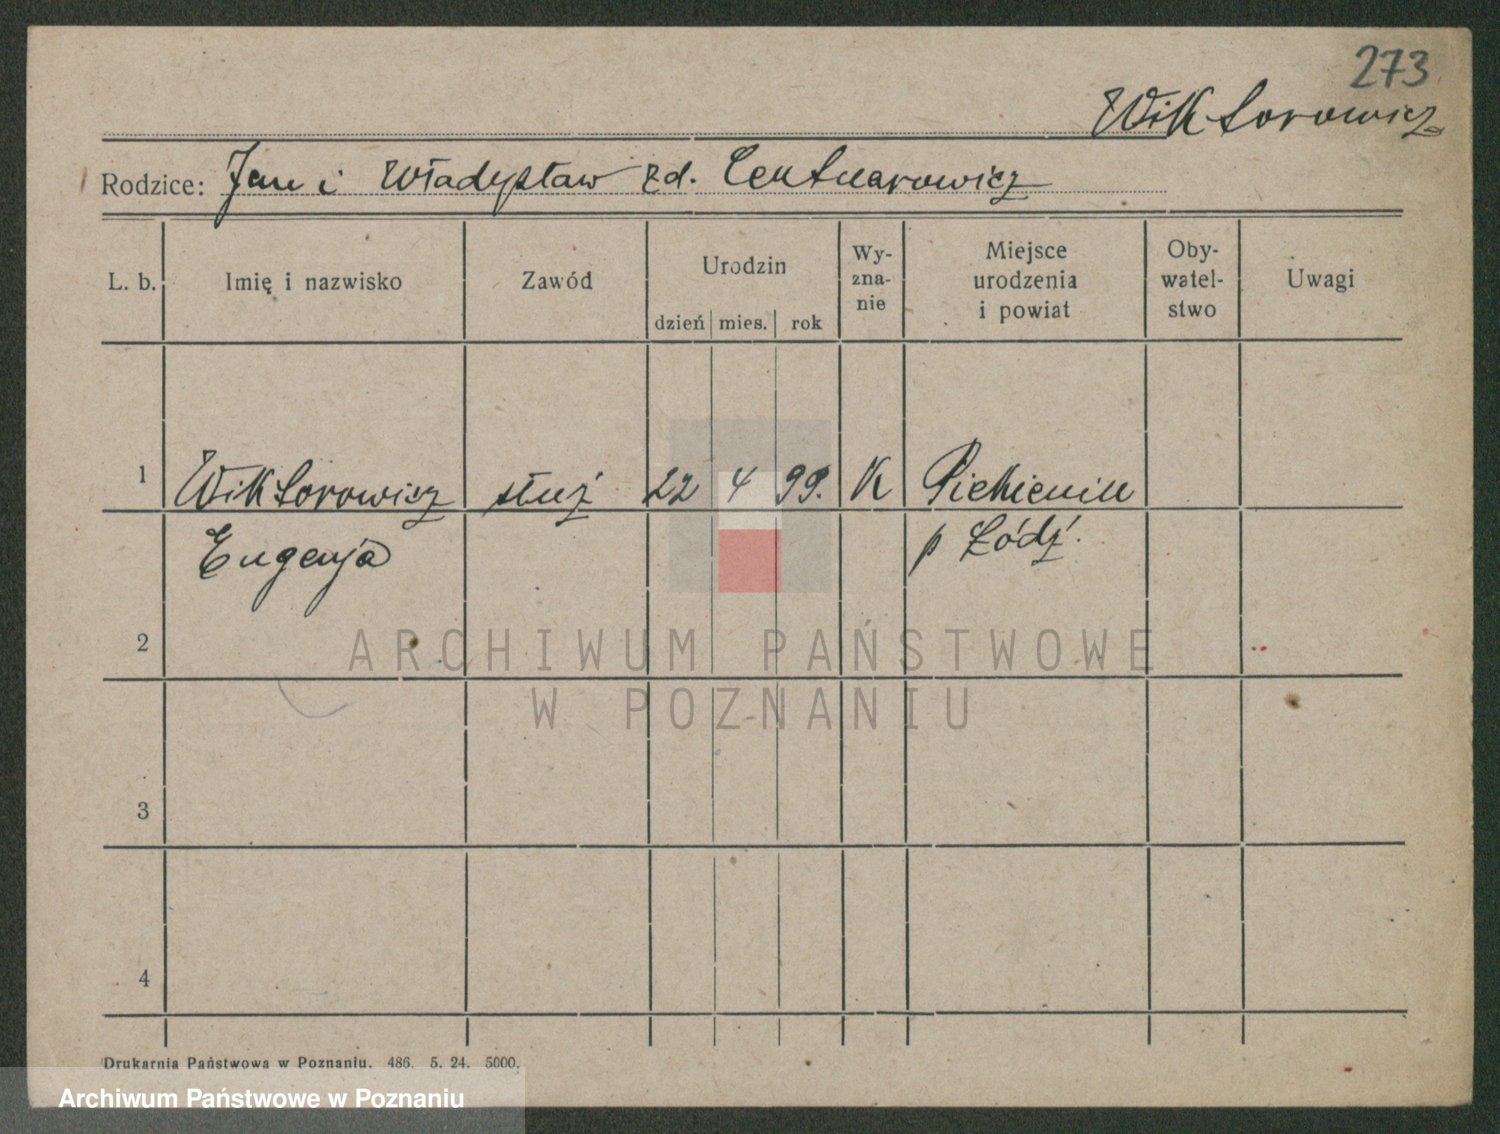 273
Wiktorowicz
Rodzice: Jan i Władysław zd. Centnarowicz
L. b. Imię i nazwisko Zawód Urodzin dzień mies. rok Wy-zna-nie Miejsce urodzenia i powiat Oby-watel-stwo Uwagi
1 Wiktorowicz służ 22 4 99. K
Eugenja p Łódź.
2
ARCHIWUM PAŃSTWOWE
W POZNANIU
3
4
Drukarnia Państwowa w Poznaniu. 486. 5. 24. 5000.
Archiwum Państwowe w Poznaniu